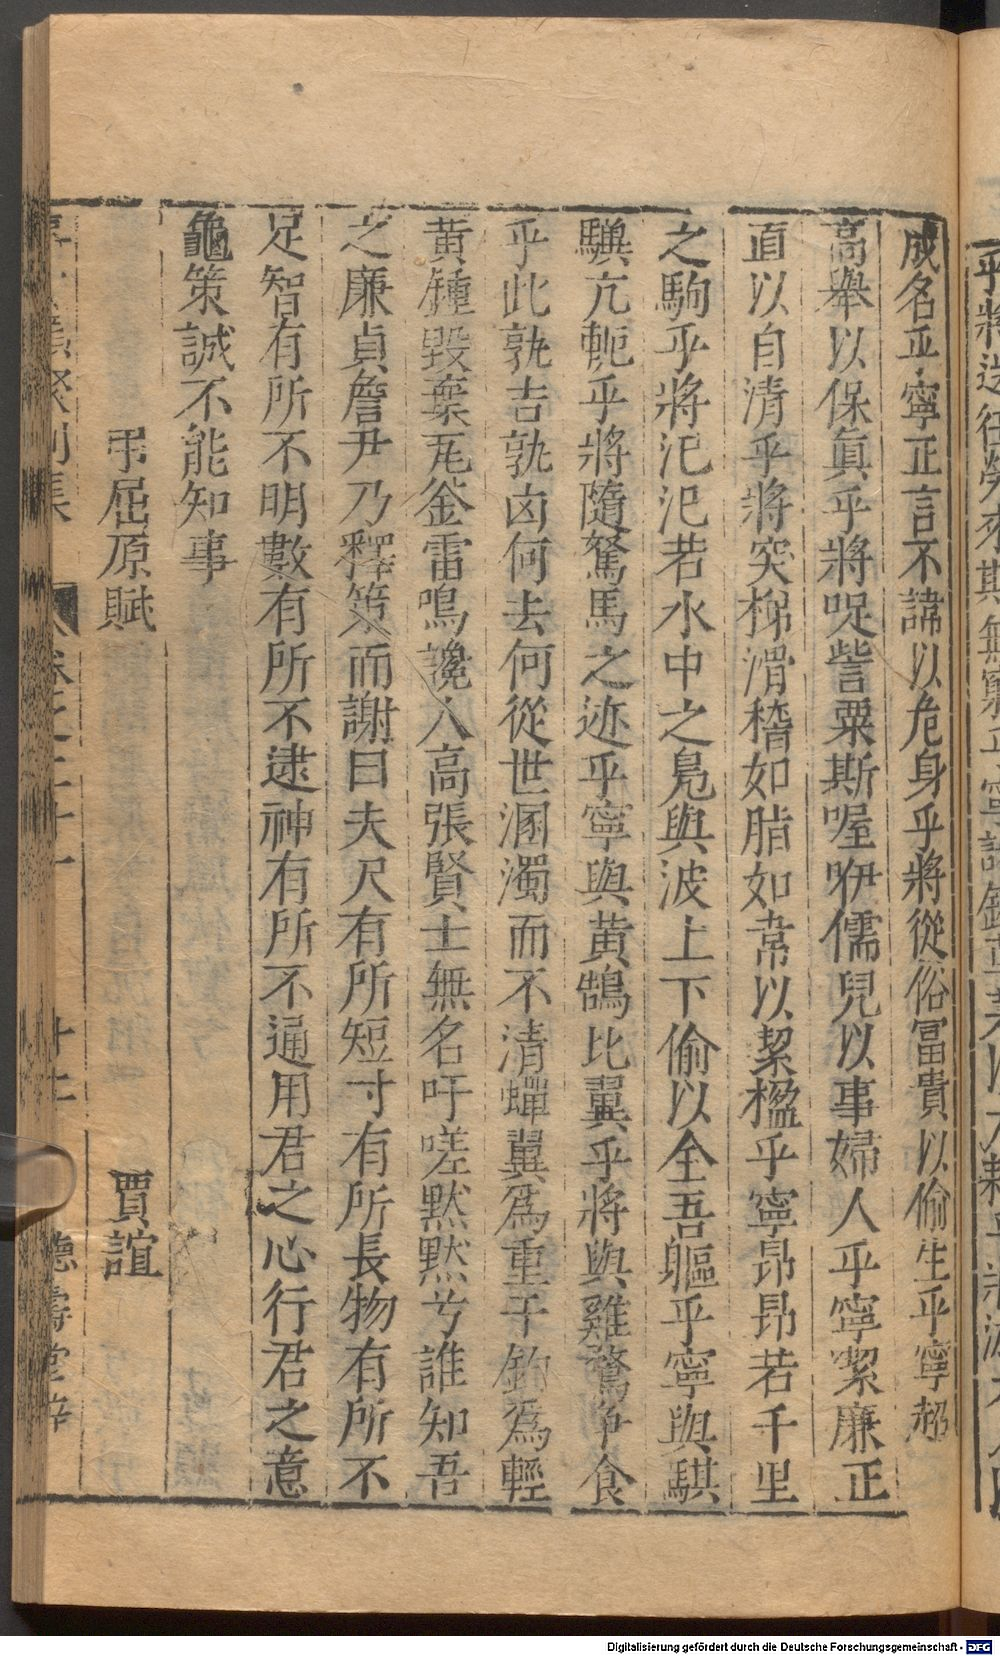 乎將送往勞來斯無窮乎寧誅鋤
成名乎寧正言不諱以危身乎將從俗冨貴以偷生乎寧超
高舉以保眞乎將哫訾粟斯喔咿儒兒以事婦人乎寧潔廉正
直以自清乎將突梯滑稽如脂如韋以絜楹乎寧昂昂若千里
之駒乎將氾氾若水中之鳧與波上下偷以全吾軀乎寧與騏
驥亢軛乎將隨駑馬之迹乎寧與黃鵠比翼乎將與雞鶩爭食
乎此孰吉孰凶何去何從世溷濁而不清蟬翼爲重千鈞爲輕
黃鍾毀棄瓦釜雷鳴讒人高張賢士無名吁嗟默默兮誰知吾
之廉貞詹尹乃釋策而謝曰夫尺有所短寸有所長物有所不
足智有所不明數有所不逮神有所不通用君之心行君之意
龜策誠不能知事
弔屈原賦 賈誼
別集 卷之二十一 十二 德壽堂梓
Digitalisierung gefördert durch die Deutsche Forschungsgemeinschaft - DFG